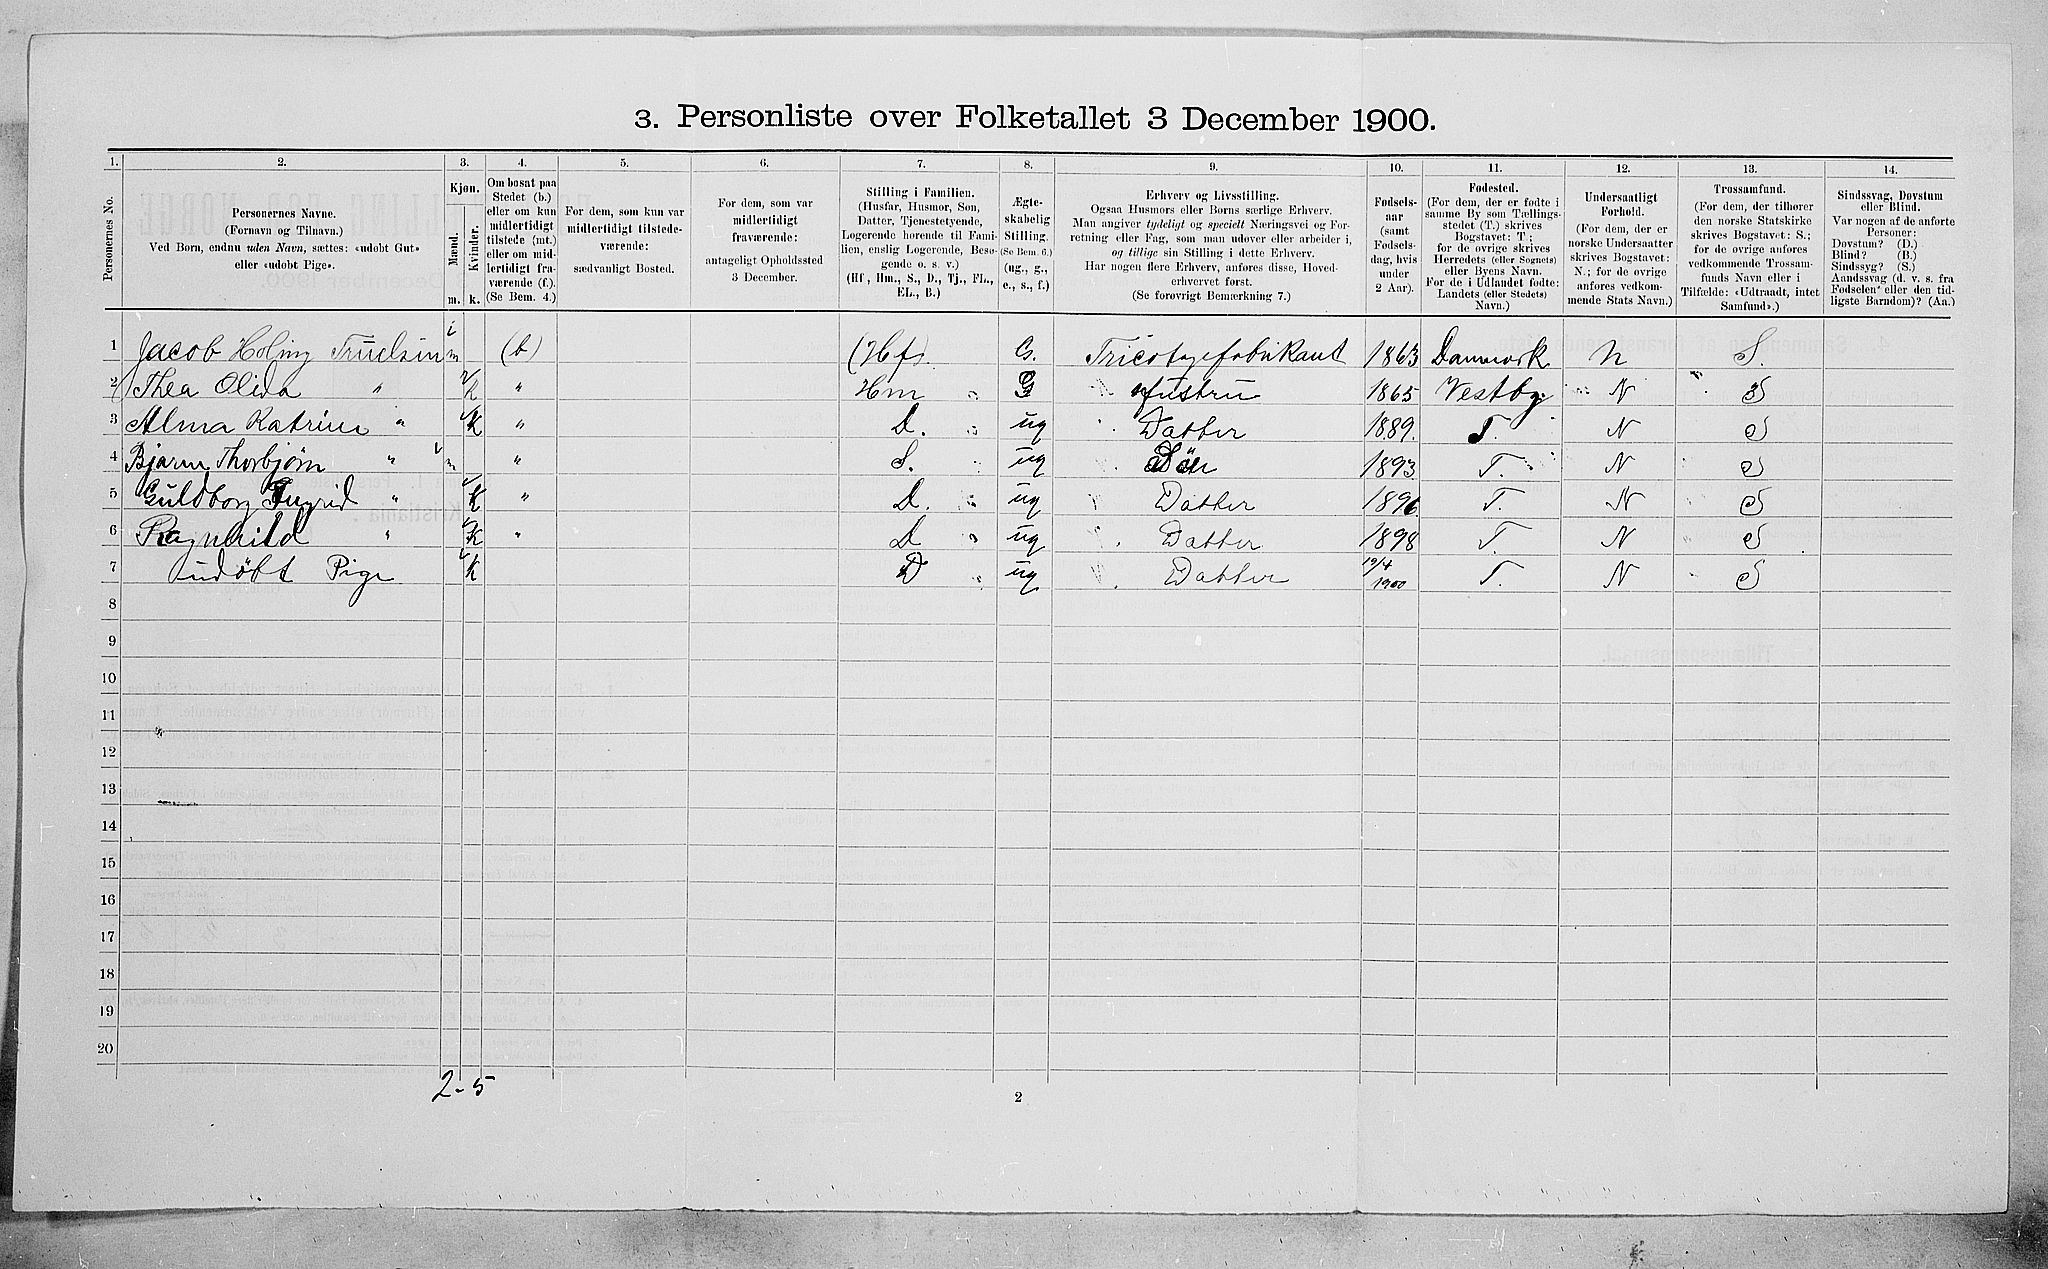 3. Personliste over Folketallet 3 December 1900.
1. 2. 3. 4. 5. 6. 7. 8. 9. 10. 11. 12. 13. 14.
Personernes No.
Personernes Navne.
(Fornavn og Tilnavn.)
Ved Børn, endnu uden Navn, sættes: «udøbt Gut»
eller «udøbt Pige».
Kjøn.
Mænd. Kvinder.
m. k.
Om bosat paa
Stedet (b.)
eller om kun
midlertidigt
tilstede (mt.)
eller om mid-
lertidigt fra-
værende (f.).
(Se Bem. 4.)
For dem, som kun var
midlertidigt tilstede-
værende:
sædvanligt Bosted.
For dem, som var
midlertidigt
fraværende:
antageligt Opholdssted
3 December.
Stilling i Familien.
(Husfar, Husmor, Søn,
Datter, Tjenestetyende,
Logerende hørende til Fami-
lien, enslig Logerende, Besø-
gende o. s. v.)
(Hf., Hm., S., D., Tj., FL.,
EL., B.)
Ægte-
skabelig
Stilling.
(Se Bem. 6.)
(ug., g.,
e., s., f.)
Erhverv og Livsstilling.
Ogsaa Husmors eller Børns særlige Erhverv.
Man angiver tydeligt og specielt Næringsvei og For-
retning eller Fag, som man udøver eller arbeider i,
og tillige sin Stilling i dette Erhverv.
Har nogen flere Erhverv, anføres disse, Hoved-
erhvervet først.
(Se forøvrigt Bemærkning 7.)
Fødsels-
aar
(samt
Fødsels-
dag, hvis
under
2 Aar).
Fødested.
(For dem, der er fødte i
samme By som Tællings-
stedet (T.) skrives
Bogstavet: T.;
for de øvrige skrives
Herredets (eller Sognets)
eller Byens Navn.
For de i Udlandet fødte:
Landets (eller Stedets)
Navn.)
Undersaatligt
Forhold.
(For dem, der er
norske Undersaatter
skrives Bogstavet:
N.; for de øvrige
anføres vedkom-
mende Stats Navn.)
Trossamfund.
(For dem, der tilhører
den norske Statskirke
skrives Bogstavet: S.;
for de øvrige anføres
vedkommende Trossam-
funds Navn eller i
Tilfælde: «Udtraadt, intet
Samfund».)
Sindssvag, Døvstum
eller Blind.
Var nogen af de anførte
Personer:
Døvstum? (D.)
Blind? (B.)
Sindssyg? (S.)
Aandssvag (d. v. s. fra
Fødselen eller den tid-
ligste Barndom)? (Aa.)
1 Jacob Holing Truelsen m (b) (Hf). G. Tricotagefabrikant 1863 Danmark N S.
2 Thea Olida " K " Hm G hustru 1865 Vestby N S
3 Alma Katrine " K " D. ug Datter 1889. T. N S
4 Bjarne Thorbjørn " m " S. ug Søn 1893 T. N S
5 Guldborg Ingrid " K " D. ug Datter 1896. T. N S
6 Ragnhild " K " D ug Datter 1898 T. N S
7 udøbt Pige K D ug Datter 19/4 1900 T. N S
8
9
10
11
12
13
14
15
16
17
18
19
20
2-5
2